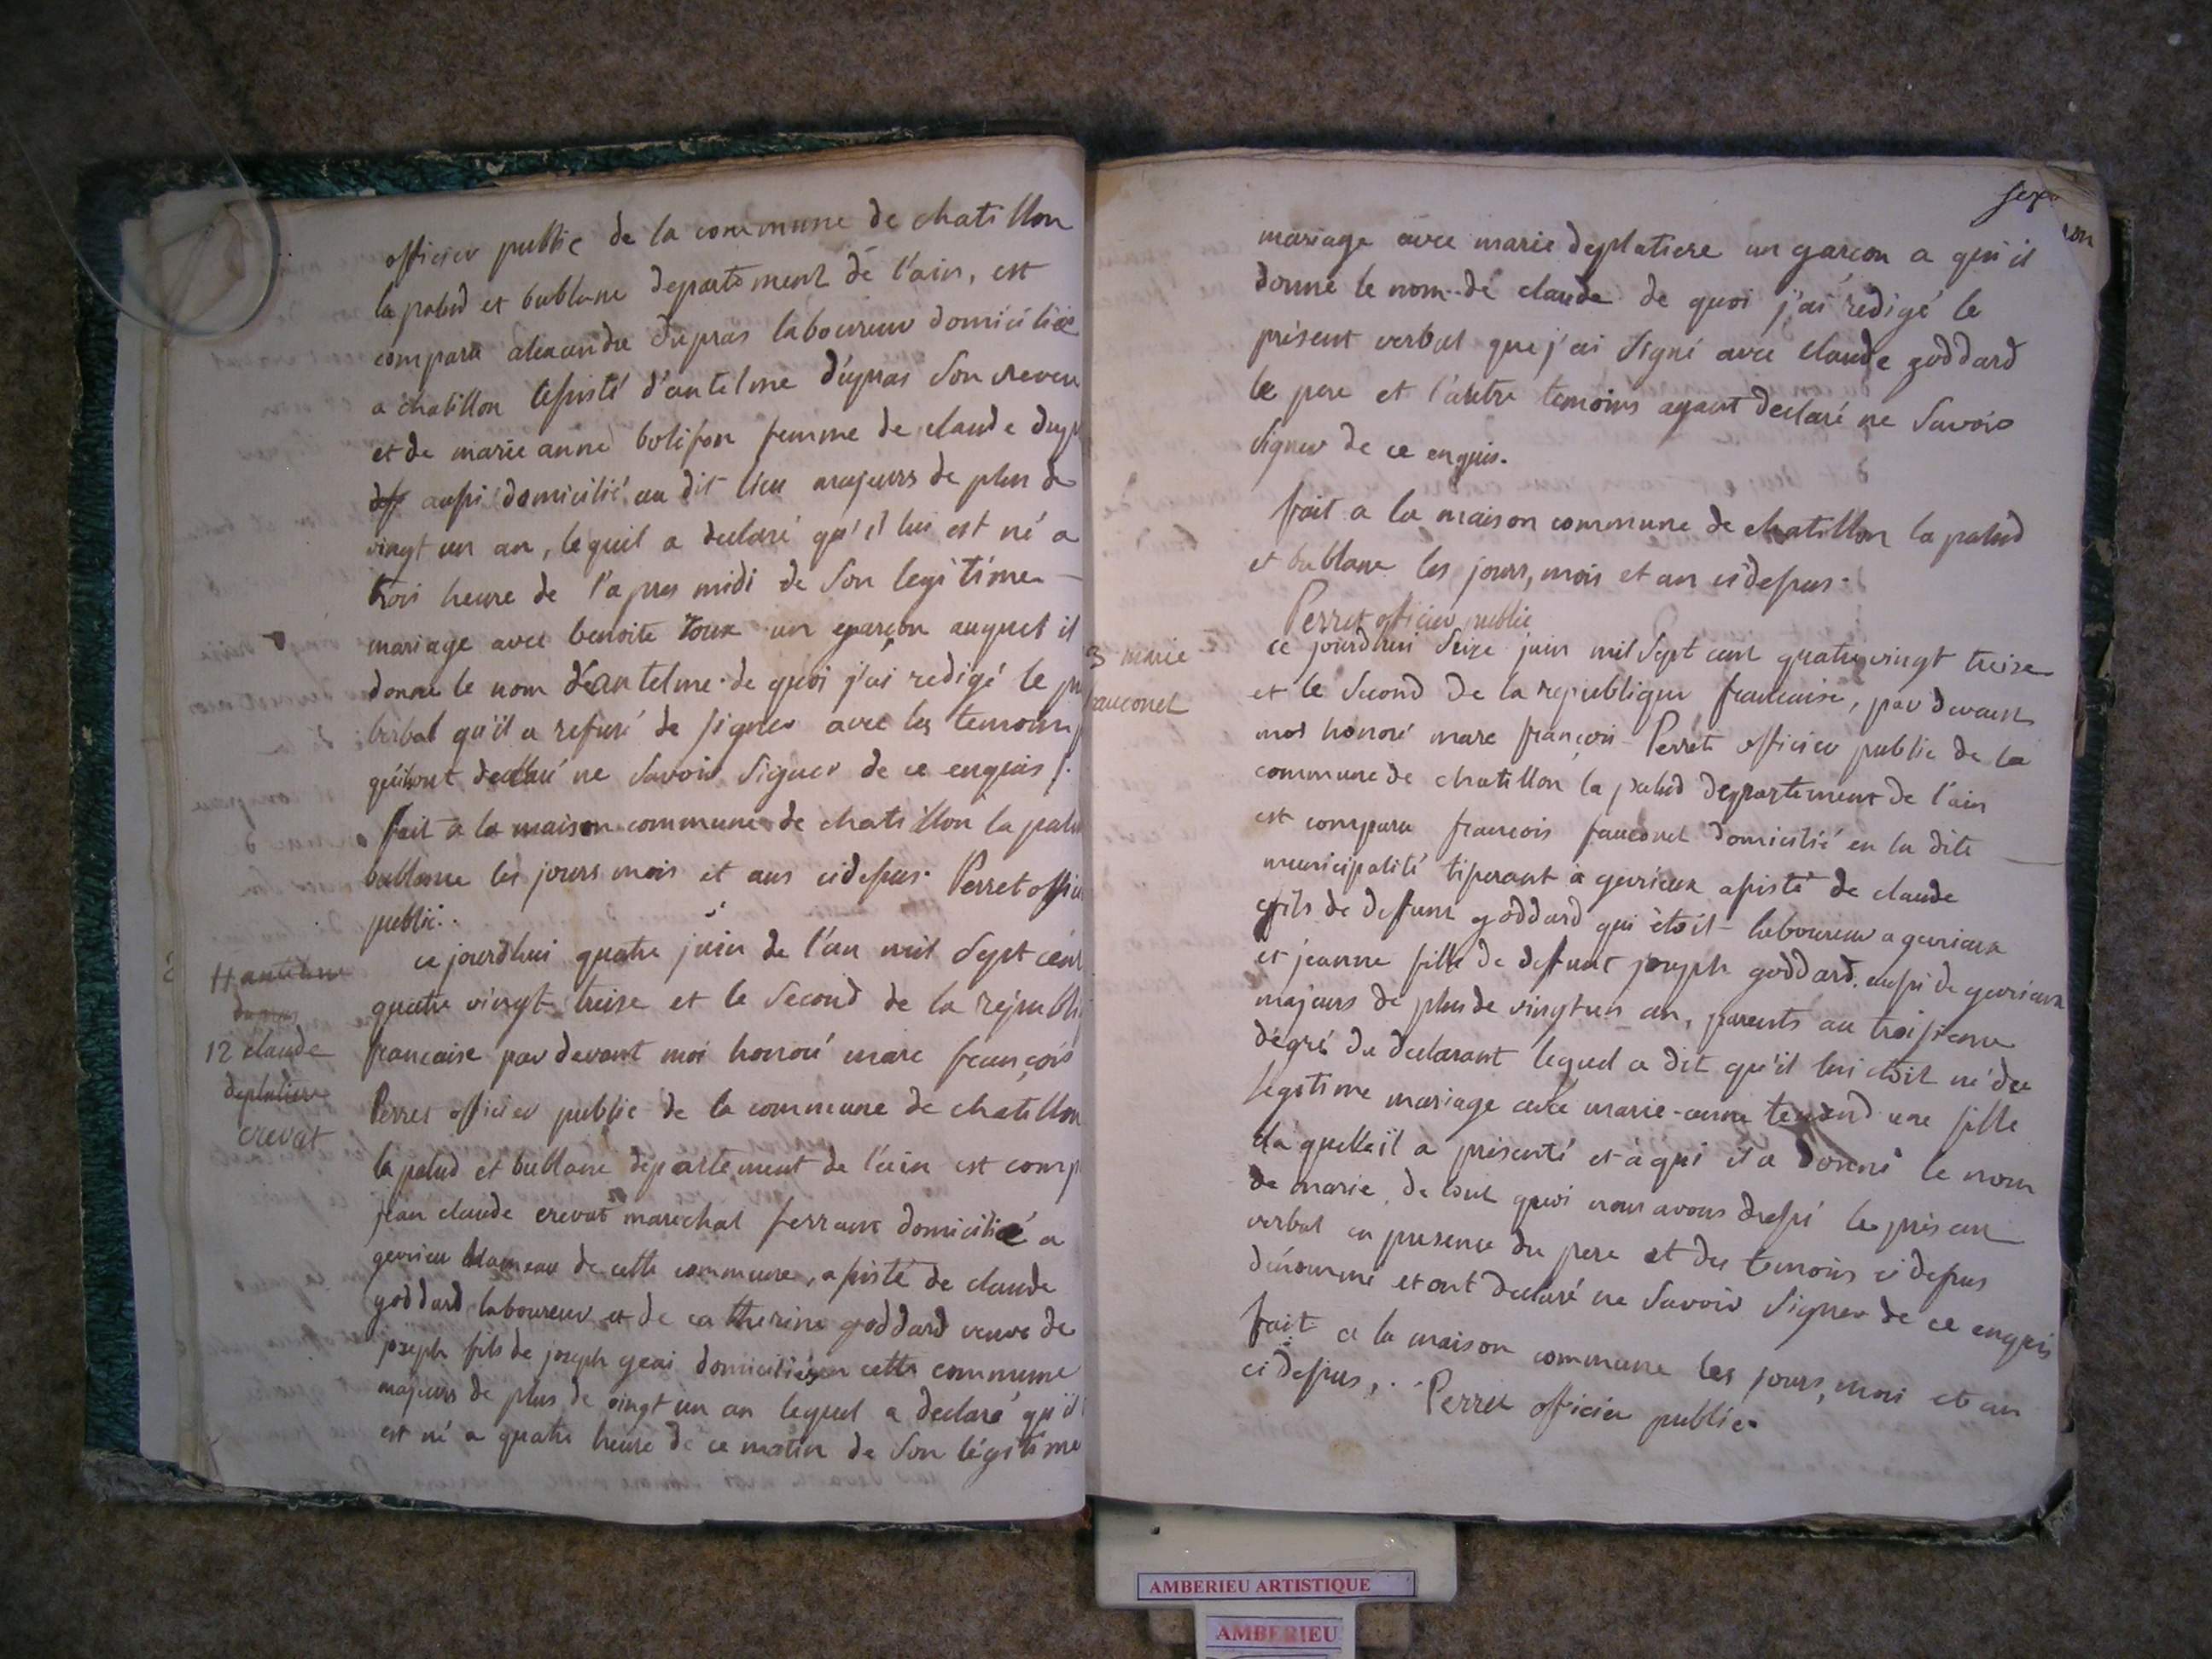 officier public de la commune de chatillon
la palud et bublane departement de l'ain, est
comparu alexandre dupras laboureur domicilié
a chatillon d'antelme dupras son neveu
et de marie anne femme de claude
aussi domicilié au dit lieu majeurs de plus de
vingt un an, lequel a declaré qu'il lui est né a
trois heure de l'apres midi de son legitime
mariage avec benoite roux un garçon auquel il
donne le nom d'antelme de quoi j'ai redigé le
verbal qu'il a refusé de signer avec les temoins
qui ont declaré ne savoir signer de ce enquis
fait a la maison commune de chatillon la palu
bublane les jours mois et ans cidessus. Perret offici
public.
ce jourdhui quatre juin de l'an mil sept cent
quatre vingt treise et le second de la republi
francaise par devant moi honoré marc françois
Perret officier public de la commune de chatillon
la palud et bublane departement de l'ain est comp
jean claude crevat marechal ferrant domicilié a
gevrieu hameau de cette commune, assisté de claude
goddard laboureur et de catherine goddard veuve de
joseph fils de joseph geai domiciliés en cette commune
majeurs de plus de vingt un an lequel a declaré qu'il
est né a quatre heure de ce matin de son légitime
11 antelme
dupras
12 claude
deplatiere
crevat
sept
mariage avec marie deplatiere un garcon a qui il
donne le nom de claude de quoi j'ai redigé le
présent verbal que j'ai signé avec claude goddard
le pere et l'autre temoins ayant declaré ne savoir
signer de ce enquis.
fait a la maison commune de chatillon la palud
et bublane les jours, mois et an cidessus.
Perret officier public
3 marie
fauconet
ce jourdhui seize juin mil sept cent quatre vingt treise
et le second de la republique francaise, par devant
moi honoré marc françois Perret officier public de la
commune de chatillon la palud departement de l'ain
est comparu francois fauconet domicilié en la dite
municipalité a gevrieux assisté de claude
fils de defunt goddard qui étoit laboureur a gevrieux
et jeanne fille de defunt joseph goddard aussi de gevrieux
majeurs de plus de vingt un an, parents au troisieme
dégré du declarant lequel a dit qu'il lui étoit né de
legitime mariage avec marie-anne tenand une fille
la quelle il a présenté et à qui il a donné le nom
de marie, de tout quoi nous avons dressé le présent
verbal en presence du pere et des temoins ci dessus
dénommé et ont declaré ne savoir signer de ce enquis
fait a la maison commune les jours, mois et an
ci dessus, Perret officier public.
AMBERIEU ARTISTIQUE
AMBERIEU